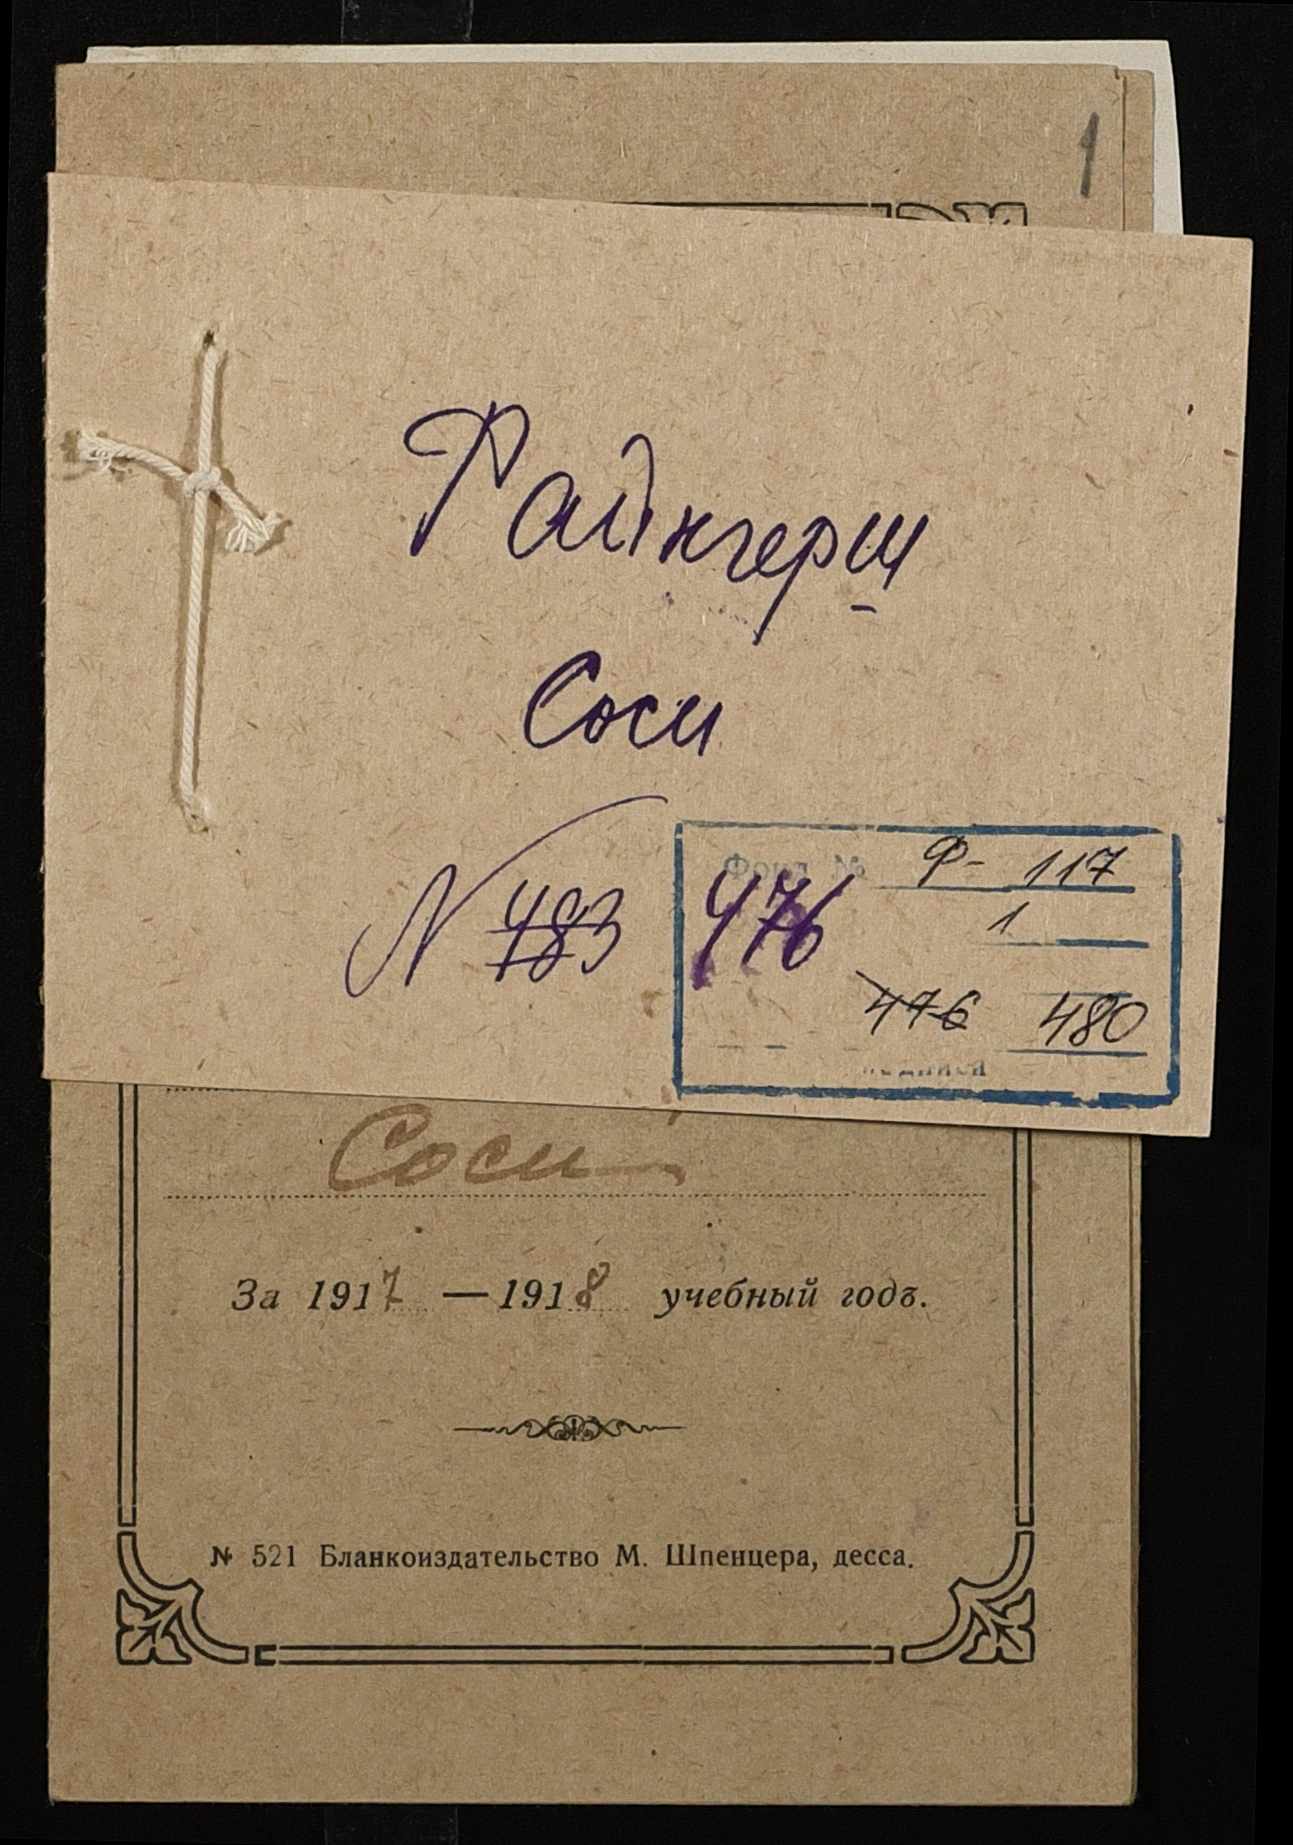 1
Файнгерш
Соси
N 483 476
Фонд № Ф- 117
1
476 480
Соси
За 1917 — 1918 учебный годъ.
№ 521 Бланкоиздательство М. Шпенцера, десса.